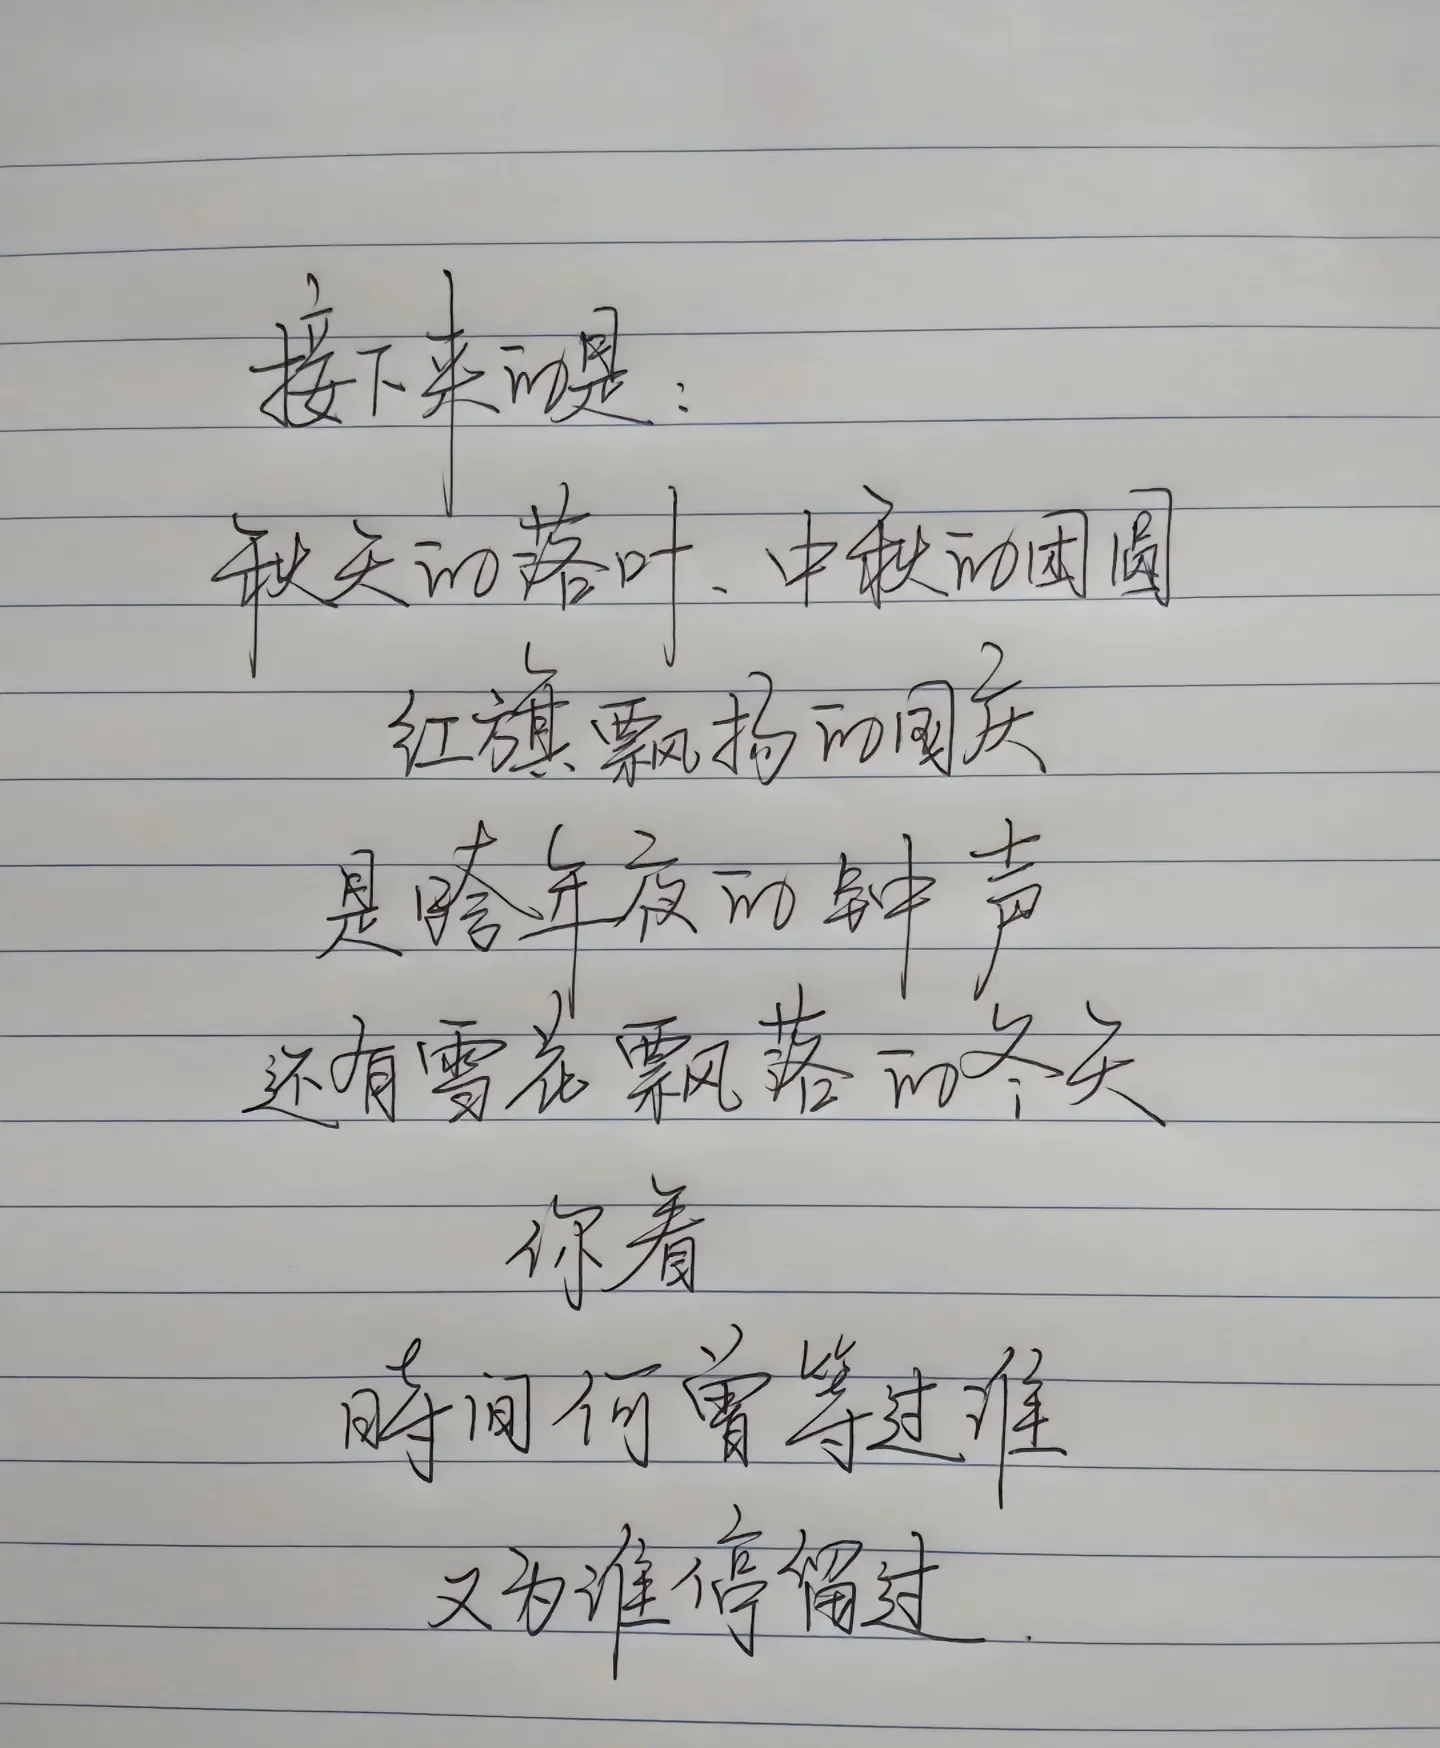 接下来的是：
秋天的落叶、中秋的团圆
红旗飘扬的国庆
是跨年夜的钟声
还有雪花飘落的冬天
你看
时间何曾等过谁
又为谁停留过.